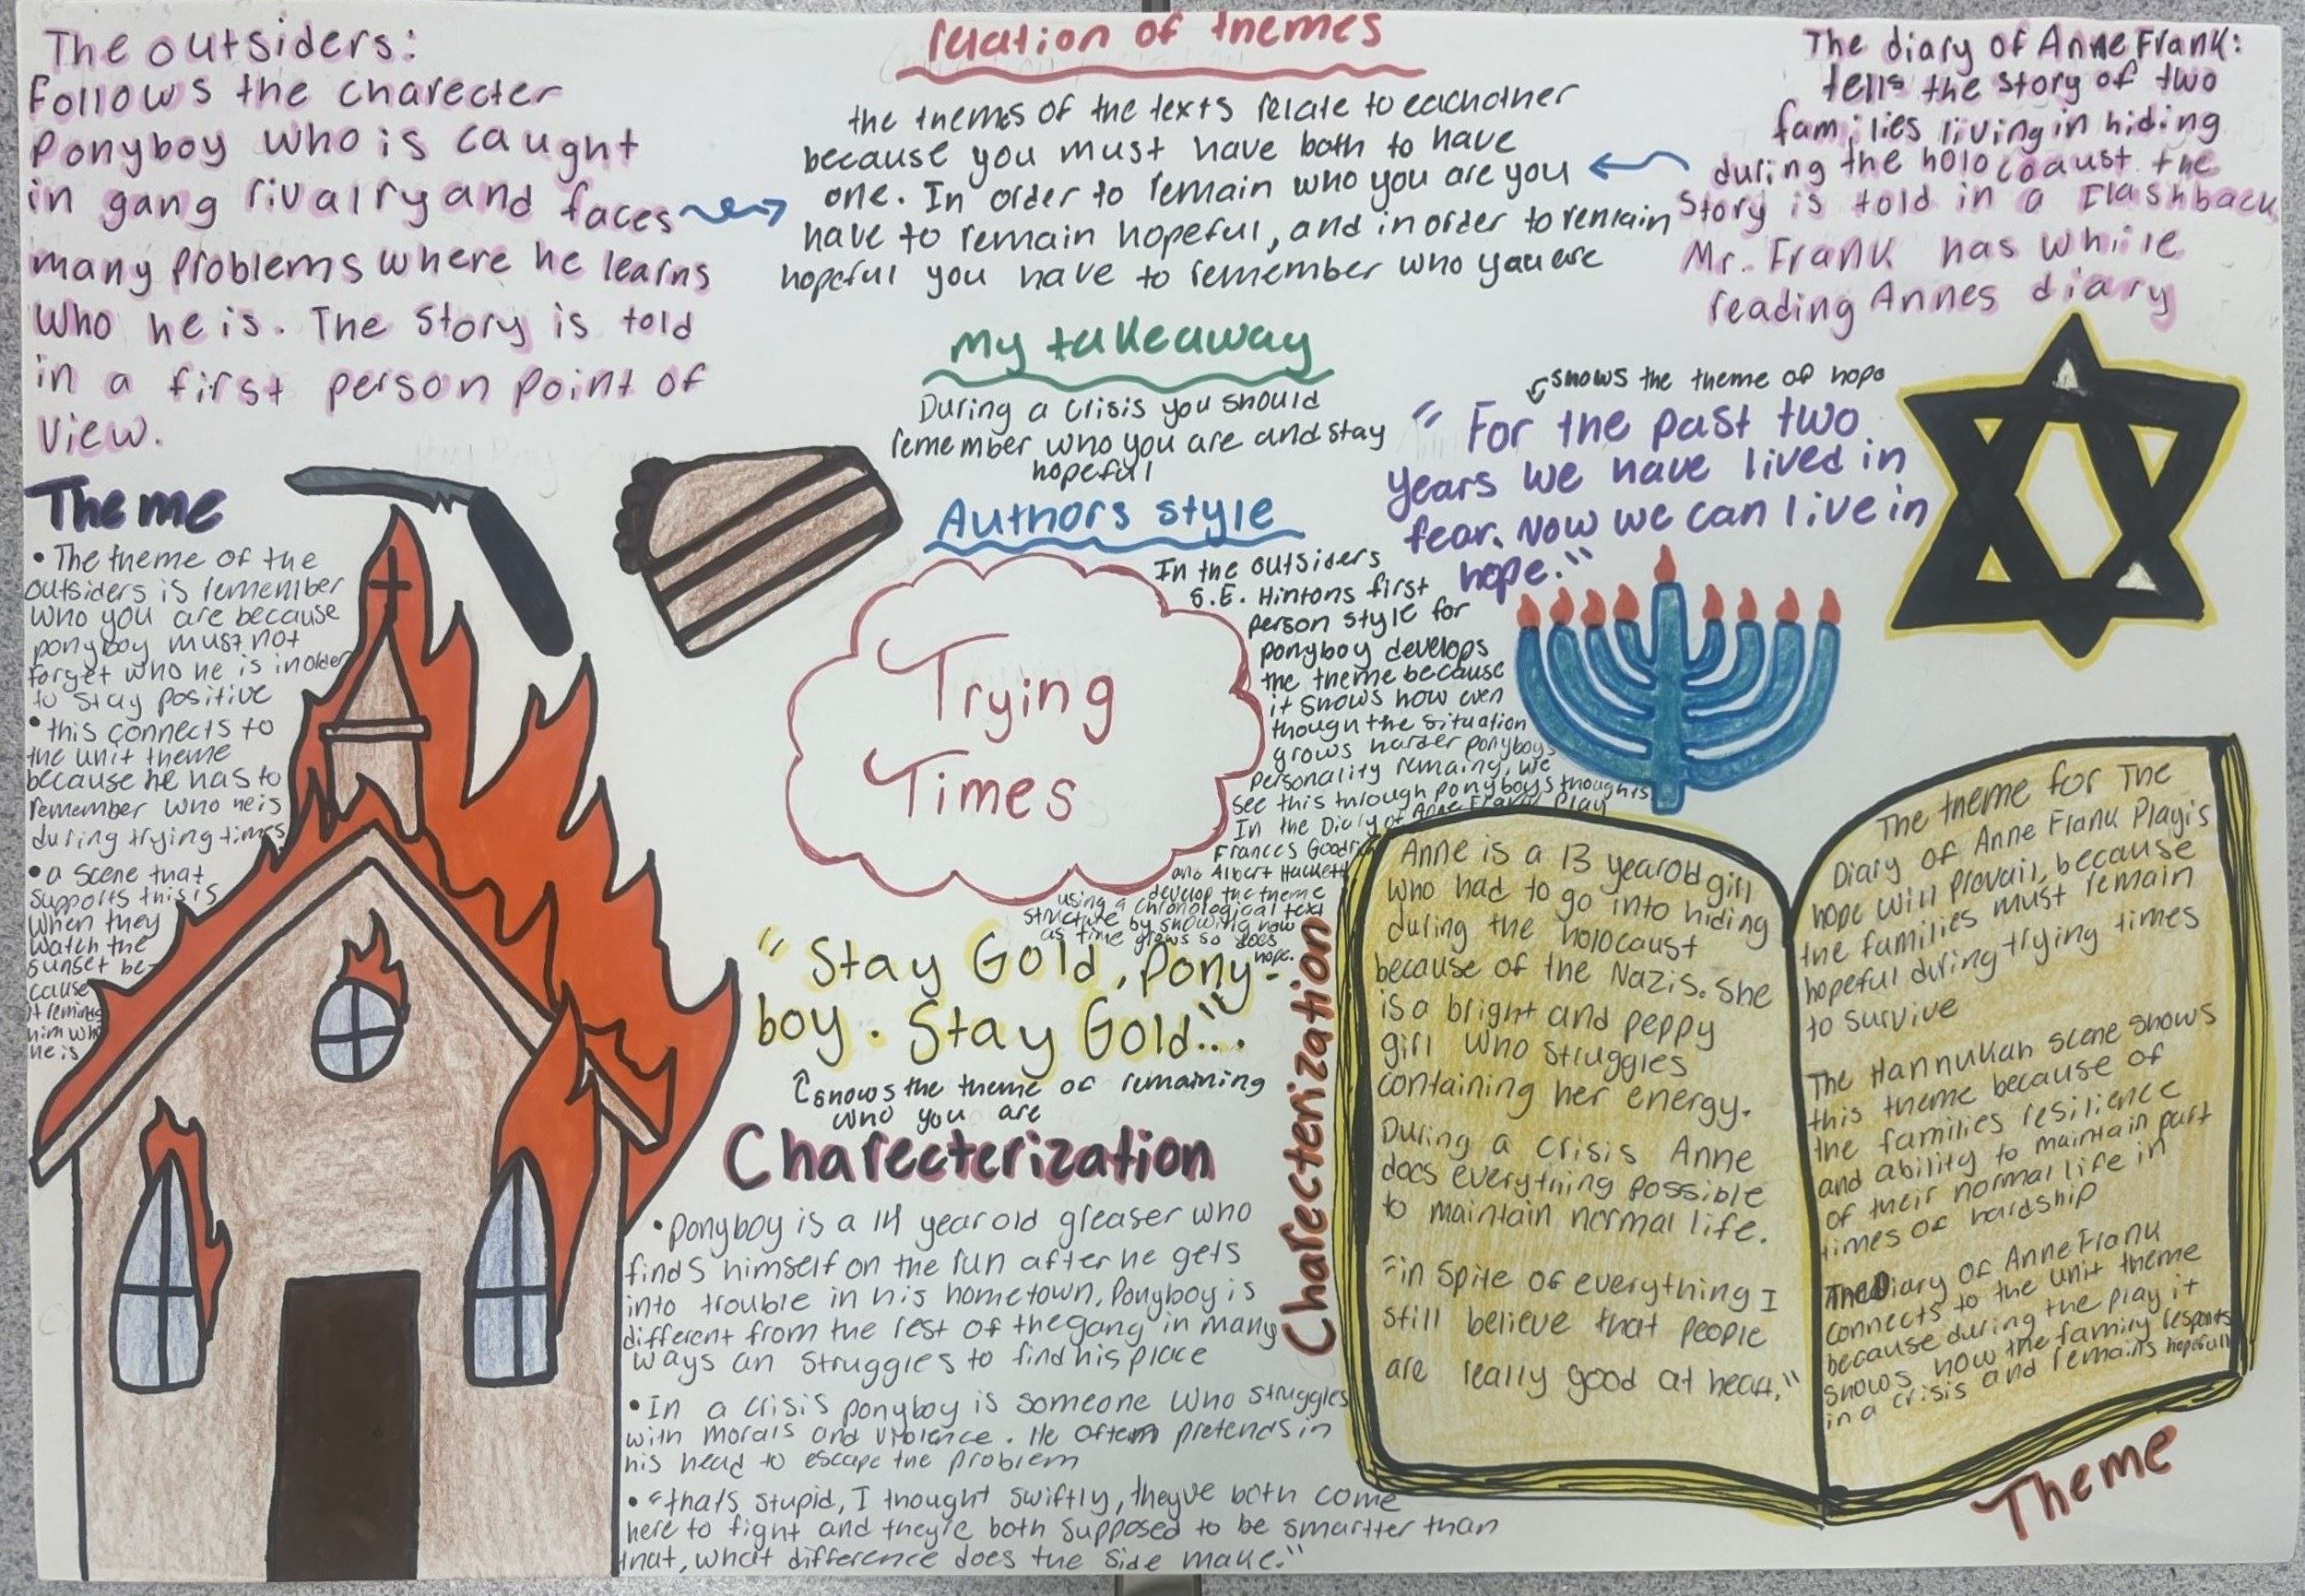 The outsiders:
Follows the charecter
Ponyboy who is caught
in gang rivalry and faces
many problems where he learns
who he is. The story is told
in a first person point of
view.
relation of themes
the themes of the texts relate to eachother
because you must have both to have
one. In order to remain who you are you
have to remain hopeful, and in order to remain
hopeful you have to remember who you are
The diary of Anne Frank:
tells the story of two
families living in hiding
during the holocoaust the
Story is told in a Flashback
Mr. Frank has while
reading Annes diary
My takeaway
During a crisis you should
remember who you are and stay
hopeful
shows the theme of hope
"For the past two
years we have lived in
fear. Now we can live in
hope."
Theme
• The theme of the
outsiders is remember
who you are because
ponyboy must not
forget who he is in order
to stay positive
• this connects to
the unit theme
because he has to
remember who he is
during trying times
• a scene that
supports this is
when they
watch the
sunset be-
cause
it reminds
him who
he is
Authors style
In the outsiders
S.E. Hintons first
person style for
ponyboy develops
the theme because
it shows how even
though the situation
grows harder ponyboys
personality remains, we
see this through ponyboys thoughts
In the Diary of Anne Frank Play
Frances Goodrich
and Albert Hackett
develop the theme
using a chronological text
structure by showing how
as time grows so does
hope.
Trying
Times
"Stay Gold, Pony-
boy. Stay Gold..."
shows the theme of remaining
who you are
Charecterization
• Ponyboy is a 14 year old greaser who
finds himself on the run after he gets
into trouble in his hometown. Ponyboy is
different from the rest of the gang in many
ways an struggles to find his place
• In a crisis ponyboy is someone who struggles
with morals and violence. He often pretends in
his head to escape the problem
• "thats stupid, I thought swiftly, theyve both come
here to fight and theyre both supposed to be smartter than
that, what difference does the side make."
Charecterization
Anne is a 13 year old girl
who had to go into hiding
during the holocaust
because of the Nazis. She
is a bright and peppy
girl who struggles
containing her energy.
During a crisis Anne
does everything possible
to maintain normal life.
"in spite of everything I
still believe that people
are really good at heart."
The theme for The
Diary of Anne Frank Play is
hope will prevail, because
the families must remain
hopeful during trying times
to survive
The Hannukah scene shows
this theme because of
the families resilience
and ability to maintain part
of their normal life in
times of hardship
The Diary of Anne Frank
connects to the unit theme
because during the play it
shows how the family responts
in a crisis and remains hopefull
Theme